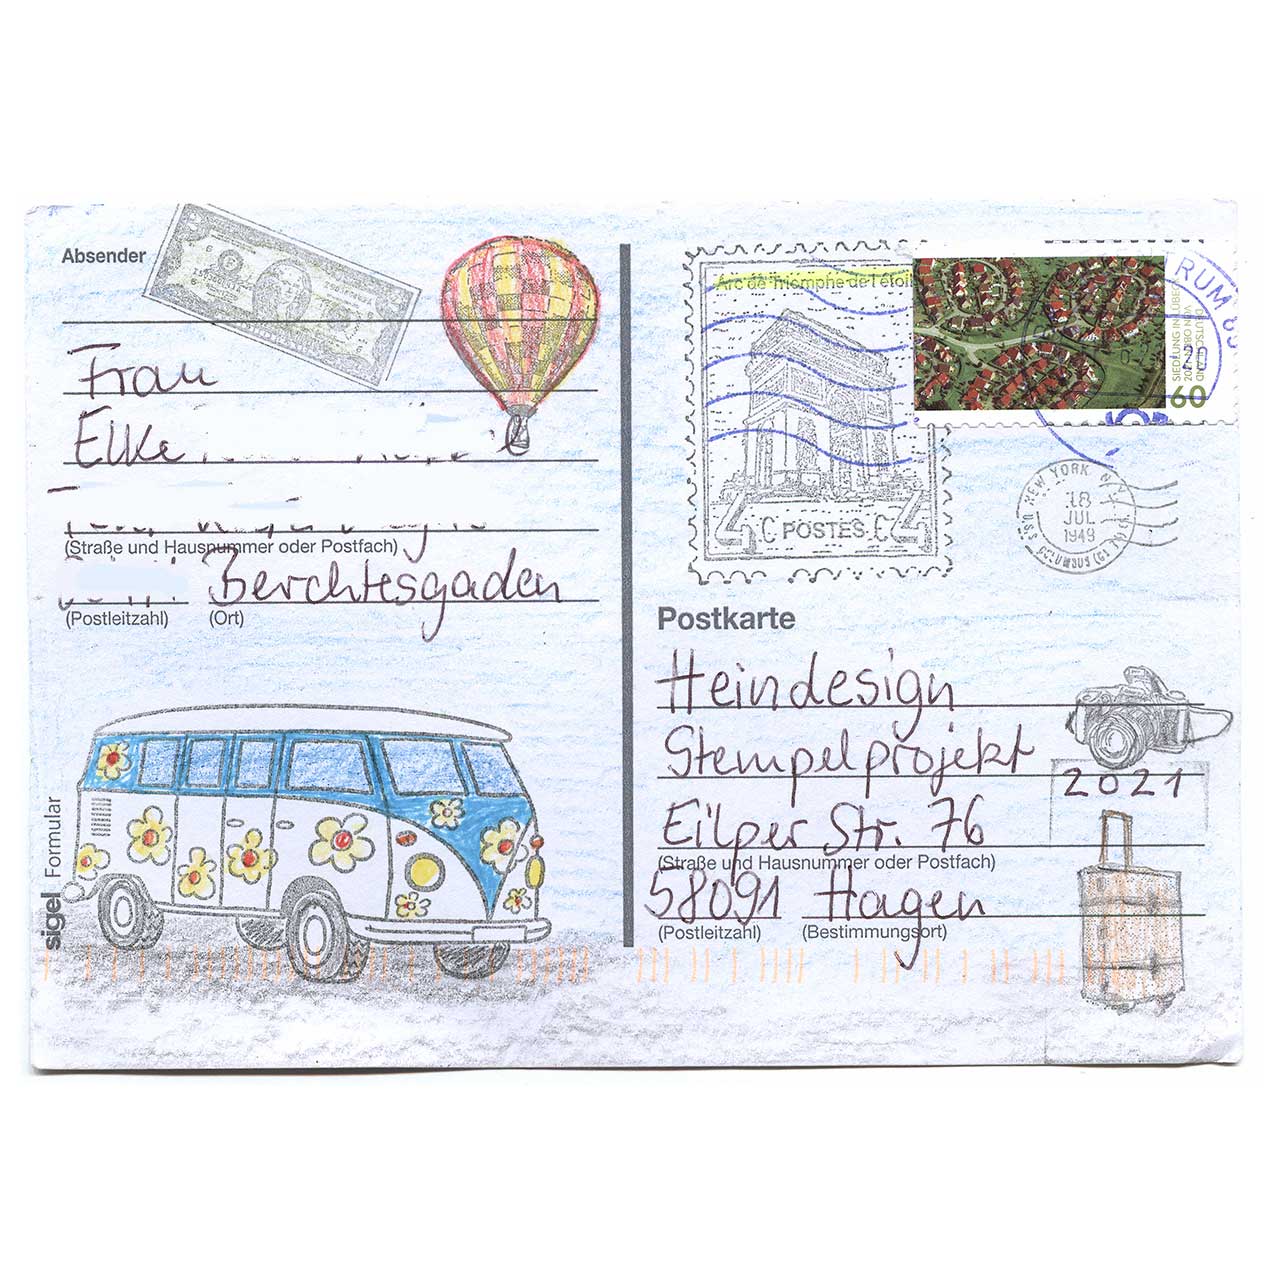 Absender
Frau
Elke
(Straße und Hausnummer oder Postfach)
Berchtesgaden
(Postleitzahl) (Ort)
sigel Formular
Arc de Triomphe de l'étoil
4 C POSTES C 4
SIEDLUNG IN
2021 VON OBEN
DEUTSCHLAND
60
TRUM
20
NEW YORK N.Y.
18
JUL
1949
U.S.S. COLUMBUS
Postkarte
Heindesign
Stempelprojekt
2021
Eilper Str. 76
(Straße und Hausnummer oder Postfach)
58091 Hagen
(Postleitzahl) (Bestimmungsort)